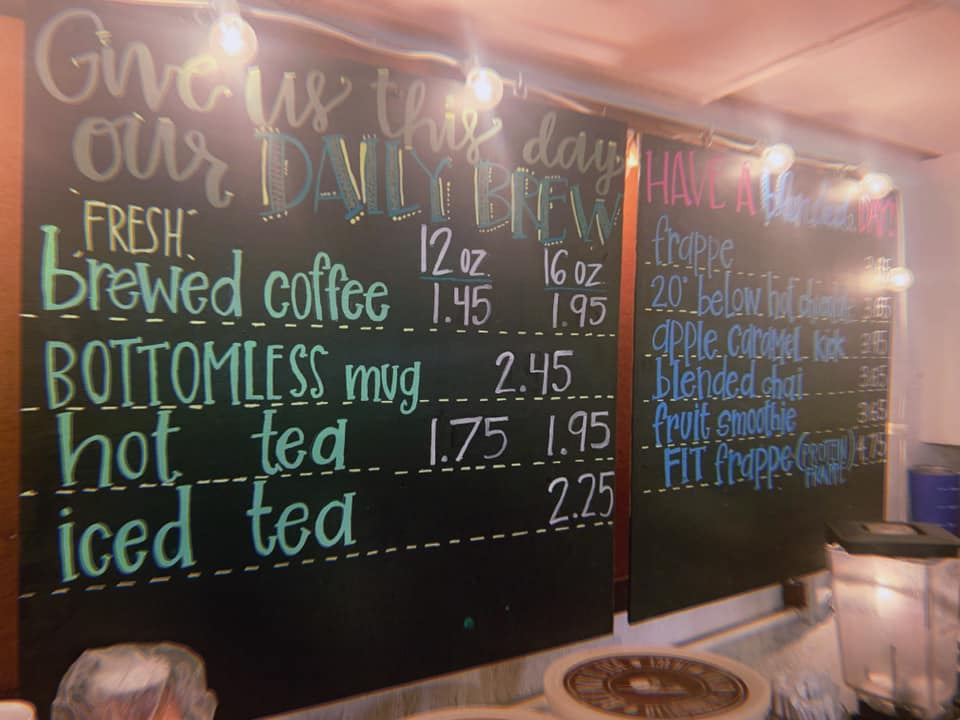 Give us this day
our DAILY BREW
FRESH
12 oz. 16 oz
brewed coffee 1.45 1.95
BOTTOMLESS mug 2.45
hot tea 1.75 1.95
iced tea 2.25
HAVE A blended DAY!
frappe
20° below hot chocolate 3.65
apple caramel kick 3.95
blended chai 3.65
fruit smoothie 3.65
FIT frappe (PROTEIN FRAPPE) 4.75